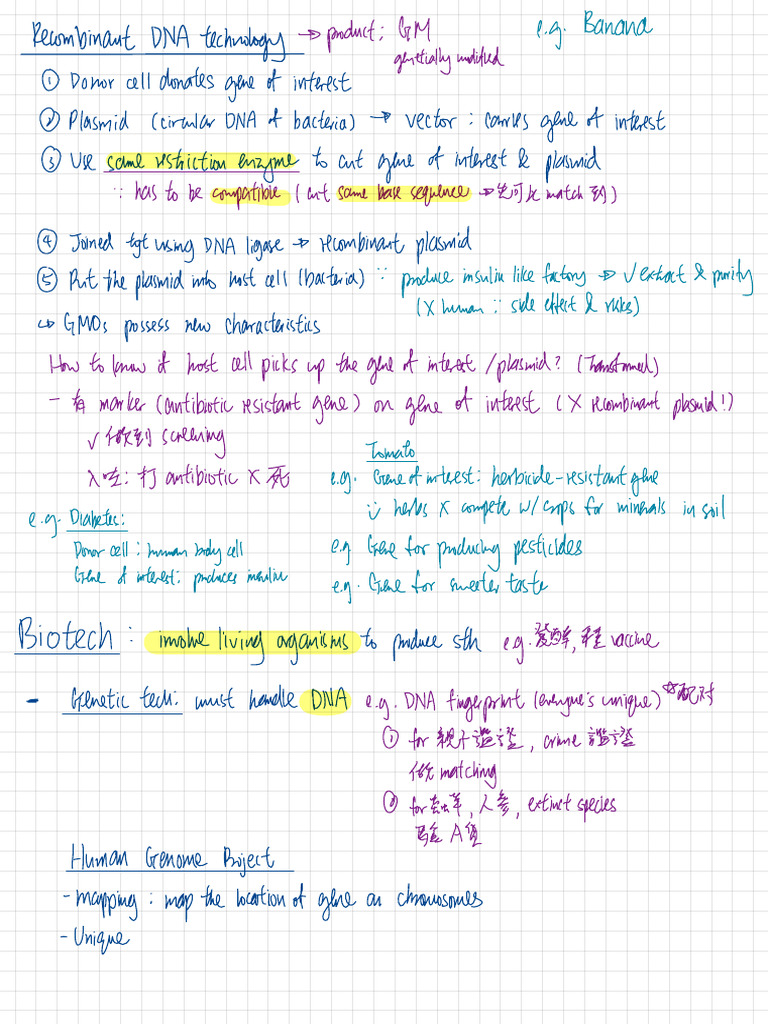 Recombinant DNA technology → product: GM
genetically modified
e.g. Banana
① Donor cell donates gene of interest
② Plasmid (circular DNA of bacteria) → vector : carries gene of interest
③ Use same restriction enzyme to cut gene of interest & plasmid
∵ has to be compatible (cut same base sequence → 先可以 match 到)
④ Joined tgt using DNA ligase → recombinant plasmid
⑤ Put the plasmid into host cell (bacteria) ∵ produce insulin like factory → ✓ extract & purify
(X human ∵ side effect & risks)
↳ GMOs possess new characteristics
How to know if host cell picks up the gene of interest / plasmid? (Transformed)
- 有 marker (antibiotic resistant gene) on gene of interest (X recombinant plasmid!)
✓ 做到 screening
入咗: 打 antibiotic X 死
Tomato
e.g. Gene of interest: herbicide-resistant gene
herbs X compete w/ crops for minerals in soil
e.g. Gene for producing pesticides
e.g. Gene for sweeter taste
e.g. Diabetes:
Donor cell : human body cell
Gene of interest: produces insulin
Biotech : involve living organisms to produce sth e.g. 發酵, 種 vaccine
- Genetic tech: must handle DNA e.g. DNA fingerprint (everyone's unique) *配对
① for 親子鑑證, crime 鑑證
做 matching
② for 虫草, 人參, extinct species
驗 A 貨
Human Genome Project
- mapping : map the location of gene on chromosomes
- Unique